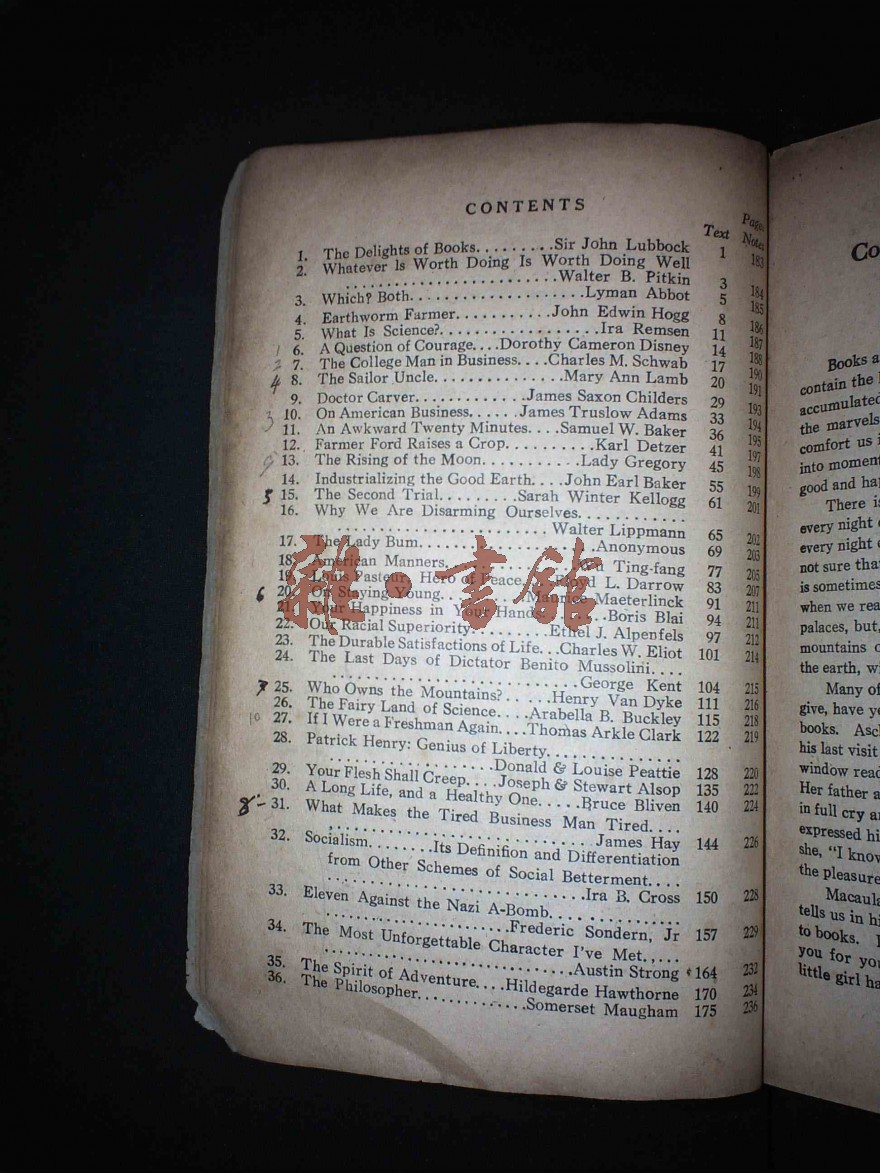 CONTENTS
Text Notes
1. The Delights of Books.........Sir John Lubbock 1 183
2. Whatever Is Worth Doing Is Worth Doing Well
.........................Walter B. Pitkin 3 184
3. Which? Both....................Lyman Abbot 5 185
4. Earthworm Farmer...........John Edwin Hogg 8 186
5. What Is Science?..................Ira Remsen 11 187
1 6. A Question of Courage....Dorothy Cameron Disney 14 188
2 7. The College Man in Business....Charles M. Schwab 17 190
4 8. The Sailor Uncle...............Mary Ann Lamb 20 191
9. Doctor Carver.............James Saxon Childers 29 193
3 10. On American Business......James Truslow Adams 33 194
11. An Awkward Twenty Minutes....Samuel W. Baker 36 195
12. Farmer Ford Raises a Crop..........Karl Detzer 41 197
9 13. The Rising of the Moon...........Lady Gregory 45 198
14. Industrializing the Good Earth....John Earl Baker 55 199
5 15. The Second Trial.........Sarah Winter Kellogg 61 201
16. Why We Are Disarming Ourselves............
......................Walter Lippmann 65 202
17. The Lady Bum....................Anonymous 69 203
18. American Manners...............Wu Ting-fang 77 205
19. Louis Pasteur, Hero of Peace....Floyd L. Darrow 83 207
6 20. On Staying Young.........Maurice Maeterlinck 91 211
21. Your Happiness in Your Hands.......Boris Blai 94 211
22. Our Racial Superiority.........Ethel J. Alpenfels 97 212
23. The Durable Satisfactions of Life...Charles W. Eliot 101 214
24. The Last Days of Dictator Benito Mussolini....
............................George Kent 104 215
7 25. Who Owns the Mountains?......Henry Van Dyke 111 216
26. The Fairy Land of Science....Arabella B. Buckley 115 218
10 27. If I Were a Freshman Again....Thomas Arkle Clark 122 219
28. Patrick Henry: Genius of Liberty..............
..................Donald & Louise Peattie 128 220
29. Your Flesh Shall Creep....Joseph & Stewart Alsop 135 222
30. A Long Life, and a Healthy One.....Bruce Bliven 140 224
8 - 31. What Makes the Tired Business Man Tired....
..............................James Hay 144 226
32. Socialism........Its Definition and Differentiation
from Other Schemes of Social Betterment....
.............................Ira B. Cross 150 228
33. Eleven Against the Nazi A-Bomb..............
....................Frederic Sondern, Jr 157 229
34. The Most Unforgettable Character I've Met.....
...........................Austin Strong 164 232
35. The Spirit of Adventure....Hildegarde Hawthorne 170 234
36. The Philosopher.............Somerset Maugham 175 236
雜·書館
Co
Books a
contain the
accumulated
the marvels
comfort us i
into moment
good and hap
There is
every night
every night
not sure tha
is sometimes
when we rea
palaces, but,
mountains o
the earth, wi
Many of
give, have ye
books. Asc
his last visit
window read
Her father a
in full cry a
expressed hi
she, "I know
the pleasure
Macaula
tells us in hi
to books. I
you for you
little girl ha